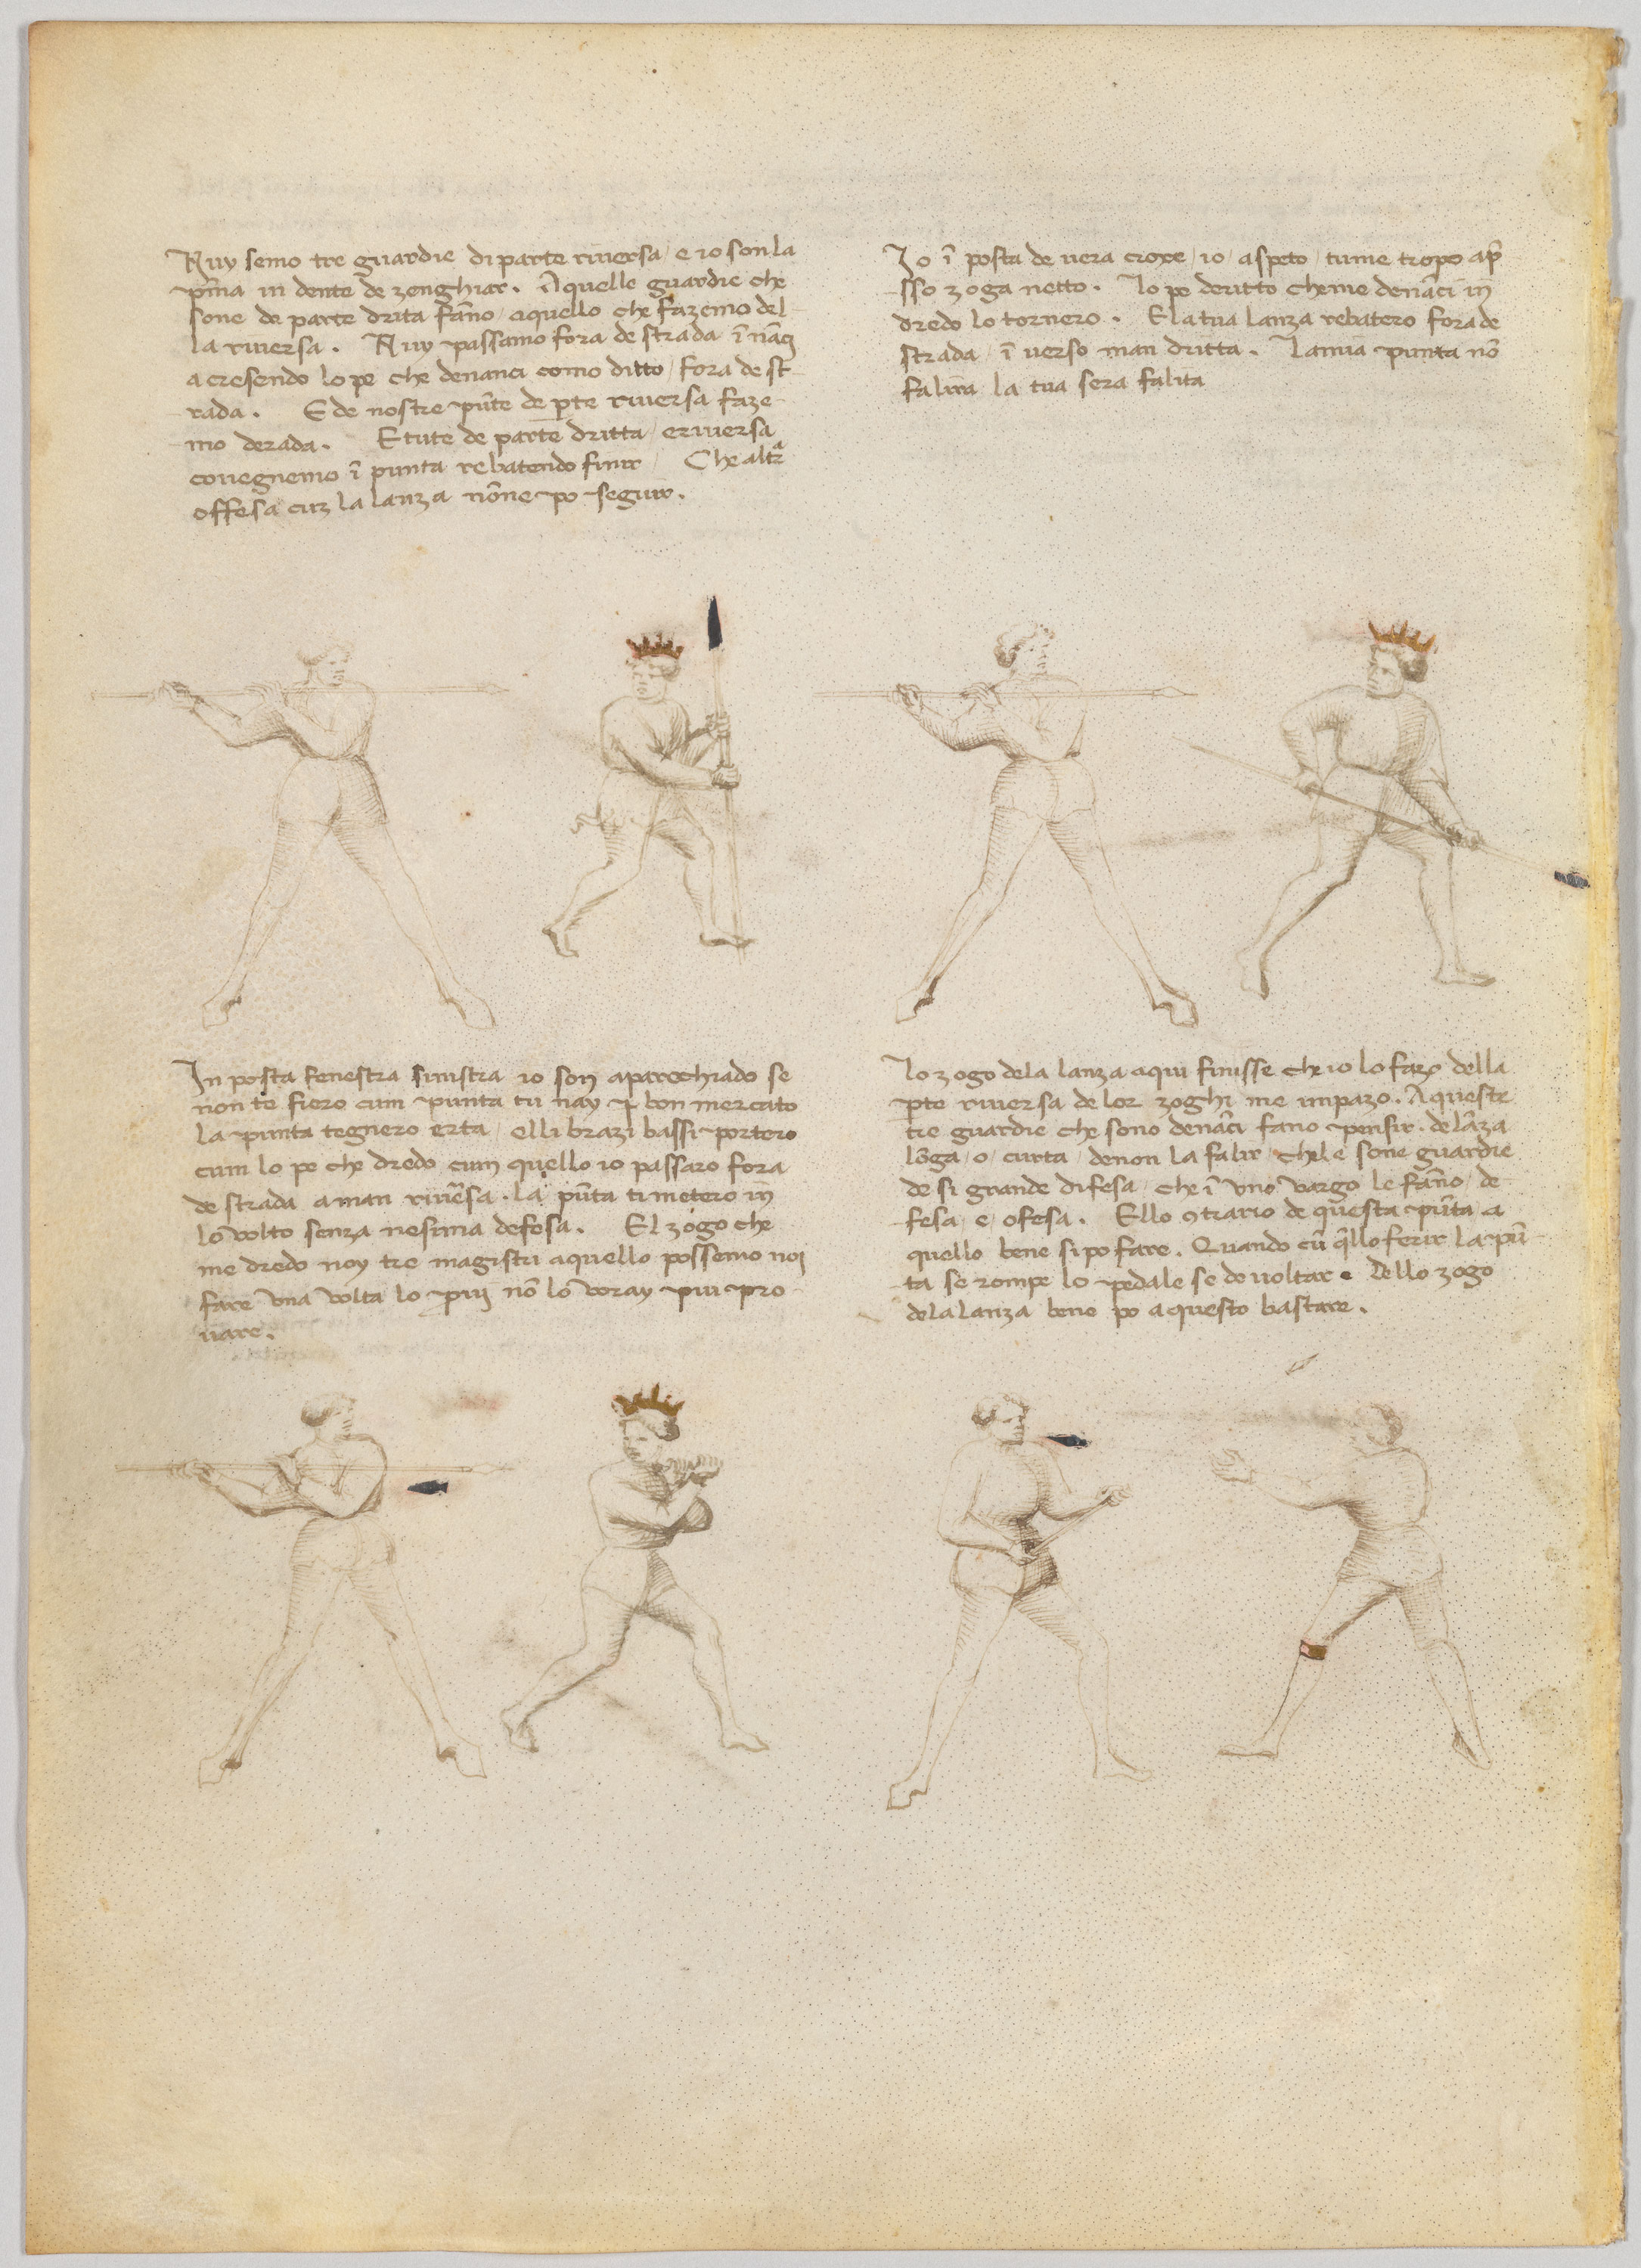 Nuy semo tre guardie di parte riversa / e io son la
p̄ma in dente de zenghiar. A quelle guardie che
sone de parte drita fāno / aquello che fazemo del
la riversa. Nuy passamo fora de strada ī nāci
acresendo lo pe che denanci como ditto / fora de st
rada. E de nostre pūte de p̱te riversa faze
mo derada. E tute de parte dritta / e riversa
covegnemo ī punta rebatendo finir / Che altra
offesa cuz la lanza nōne po seguir.
Io ī posta de vera croxe / io / aspeto / tu me tropo ap̄
sso zoga netto. Lo pe deritto che me denāci in
dredo lo tornero. E la tua lanza rebatero fora de
strada / ī verso man dritta. La mia punta nō
falira la tua sera falita
In posta fenestra sinistra io son aparechiado se
non te fiero cum punta tu nay ꝑ bon mercato
la punta tegnero erta / elli brazi bassi portero
cum lo pe che dredo cum quello io passaro fora
de strada a man rivēsa. la pūta ti metero in
lo volto senza nesuna defesa. El zogo che
me dredo noy tre magistri aquello possemo noi
fare una volta lo p̄vij nō lo voray piu pro
vare.
Lo zogo dela lanza aqui finisse che io lo fazo della
ꝑte riversa de lor zoghi me impazo. A queste
tre guardie che sono denāci fano pensir. de lāza
lōga / o / curta / de non la falir / chele sone guardie
de si grande difesa / che ī uno vargo le fāno / de
fesa / e / ofesa. E llo ꝯtrario de questa pūta a
quello bene si po fare. Quando cū q̄llo ferir la pū
ta se rompe lo pedale se de voltar. Dello zogo
dela lanza bene po aquesto bastare.